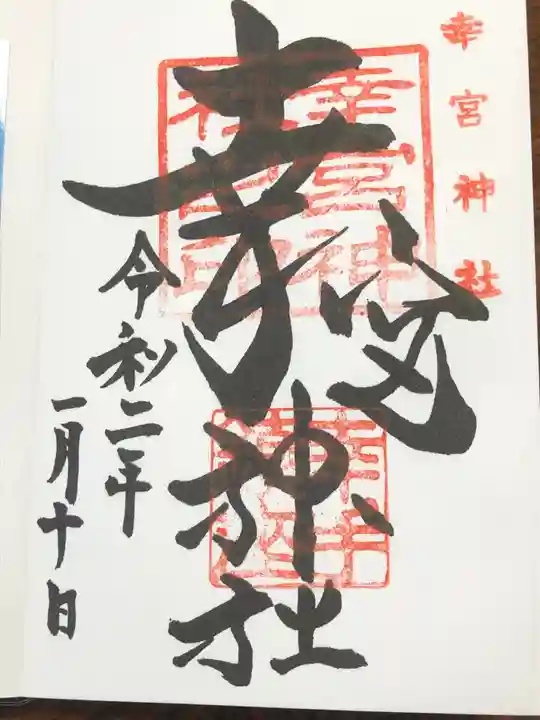 幸宮神社
幸宮神社
幸宮神社印
令和二年
一月十日